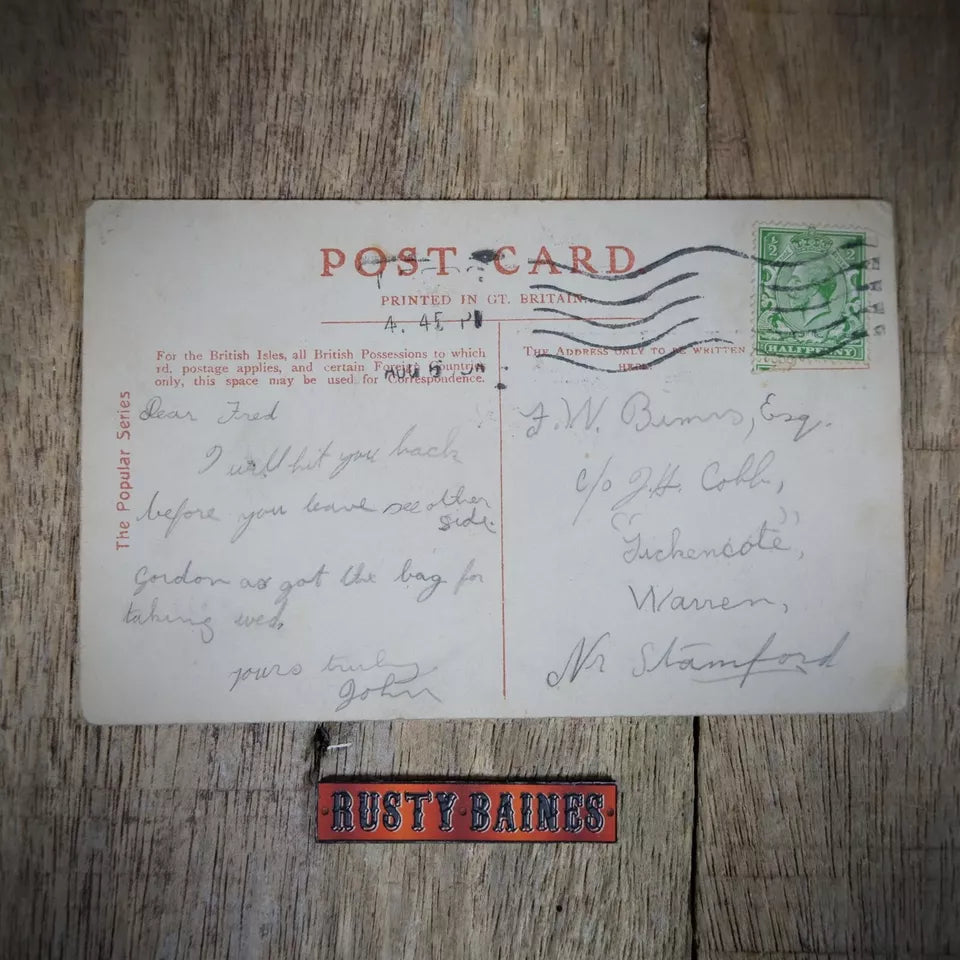 POST CARD
PRINTED IN GT. BRITAIN.
4. 45 P
AUG 6
½ ½
HALFPENNY
For the British Isles, all British Possessions to which
1d. postage applies, and certain Foreign Countries
only, this space may be used for Correspondence.
THE ADDRESS ONLY TO BE WRITTEN
HERE.
The Popular Series
Dear Fred
I will hit you back
before you leave see other
side.
Gordon as got the bag for
taking wed,
yours truly
John
F. W. Esq.
c/o J. H. Cobb,
"Tickencote",
Warren,
Nr Stamford
RUSTY BAINES